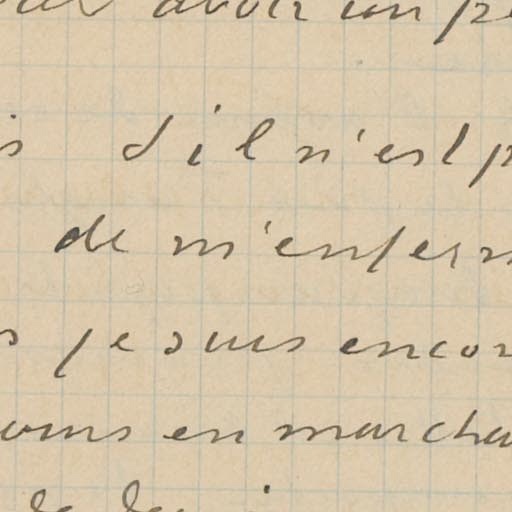 avoir un pe
s s'il n'est p
de m'enferm
s je suis encor
ous en marcha